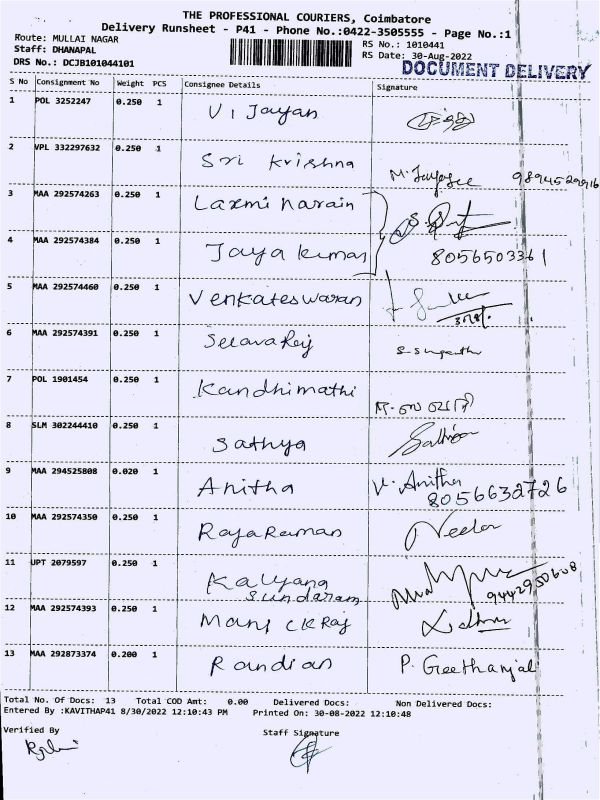 THE PROFESSIONAL COURIERS, Coimbatore
Delivery Runsheet - P41 - Phone No.:0422-3505555 - Page No.:1
Route: MULLAI NAGAR
Staff: DHANAPAL
DRS No.: DCJB101044101
RS No.: 1010441
RS Date: 30-Aug-2022
DOCUMENT DELIVERY
S No Consignment No Weight PCS Consignee Details Signature
1 POL 3252247 0.250 1 Vijayan
2 VPL 332297632 0.250 1 Sri Krishna
9894529916
3 MAA 292574263 0.250 1 Laxmi narain
4 MAA 292574384 0.250 1 Jaya kumar 8056503361
5 MAA 292574460 0.250 1 Venkateswaran
6 MAA 292574391 0.250 1
7 POL 1901454 0.250 1 Kandhimathi
8 SLM 302244410 0.250 1 Sathya
9 MAA 294525808 0.020 1 Anitha V. Anitha
8056632726
10 MAA 292574350 0.250 1 Rajaraman Neela
11 UPT 2079597 0.250 1 Kalyana
Sundaram 9442950608
12 MAA 292574393 0.250 1
13 MAA 292873374 0.200 1 Pandian P. Geethanjali
Total No. Of Docs: 13 Total COD Amt: 0.00 Delivered Docs: Non Delivered Docs:
Entered By :KAVITHAP41 8/30/2022 12:10:43 PM Printed On: 30-08-2022 12:10:48
Verified By Staff Signature